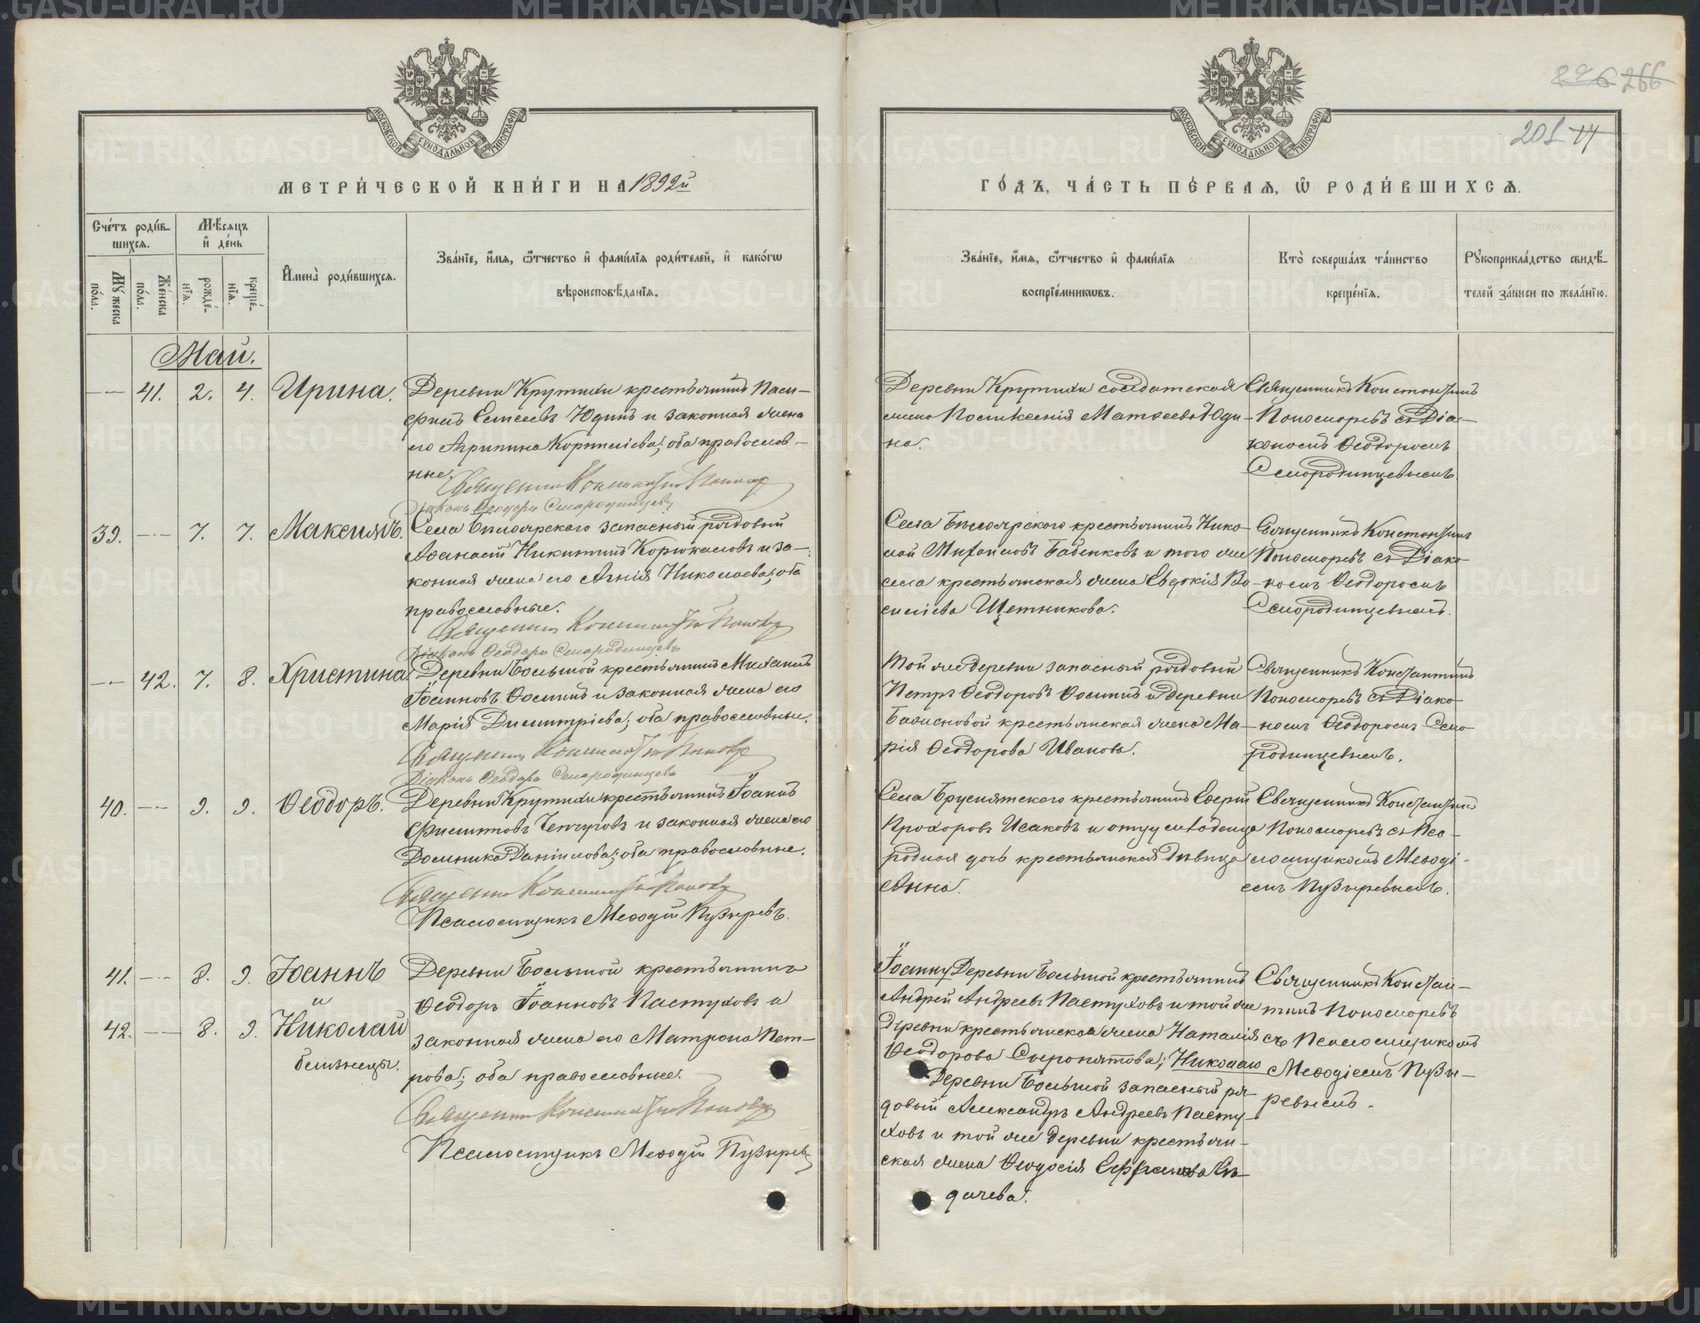 266
201
МЕТРИ́ЧЕСКОЙ КНИ́ГИ НА 1892й
ГО́ДЪ, ЧА́СТЬ ПЕ́РВАЯ, Ѿ РОДИ́ВШИХСЯ.
Сче́тъ роди́в-
шихся.
Мѣ́сяцъ
и҆ де́нь
Му́жеска
по́ла.
Же́нска
по́ла.
рожде́-
нїя.
креще́-
нїя.
И҆мена̀ роди́вшихся.
Зва́нїе, и҆́мя, ѻ҆́тчество и҆ фами́лїя роди́телей, и҆ како́гѡ
вѣроисповѣ́данїя.
Зва́нїе, и҆́мя, ѻ҆́тчество и҆ фами́лїя
воспрїе́мникѡвъ.
Кто̀ соверша́лъ та́инство
креще́нїя.
Рꙋкоприкла́дство свидѣ́-
телей за́писи по жела́нїю.
Май.
41. 2. 4. Ирина.
Деревни Крутихи крестьянинъ Пам-
филъ Елисеевъ Юдинъ и законная жена
его Агрипина Корнилiева; оба православ-
ные.
Священникъ Константинъ Пономар
Дiаконъ Ѳеодоръ Смородинцевъ
Деревни Крутихи солдатская
жена Матѳеева Юди-
на.
Священникъ Константинъ
Пономаревъ съ Дiа-
кономъ Ѳеодоромъ
Смородинцевымъ.
39. 7. 7. Максимъ.
Села Бѣлоярскаго запасный рядовый
Аѳанасiй Никитинъ Корюкаловъ и за-
конная жена его Агнiя Николаева; оба
православные.
Священникъ Константинъ Пономар
Дiаконъ Ѳеодоръ Смородинцевъ
Села Бѣлоярскаго крестьянинъ Нико-
лай Михайловъ Бабенковъ и того же
села крестьянская жена Евдокiя Ва-
силiева Щетникова.
Священникъ Константинъ
Пономаревъ съ Дiако-
номъ Ѳеодоромъ
Смородинцевымъ.
42. 7. 8. Христина
Деревни Большой крестьянинъ Михаилъ
Iоанновъ Ѳоминъ и законная жена его
Марiя Димитрiева; оба православные.
Священникъ Константинъ Пономар
Дiаконъ Ѳеодоръ Смородинцевъ
Той же деревни запасный рядовый
Петръ Ѳеодоровъ Ѳоминъ и деревни
крестьянская жена Ма-
рiя Ѳеодорова Иванова.
Священникъ Константинъ
Пономаревъ съ Дiако-
номъ Ѳеодоромъ Смо-
родинцевымъ.
40. 9. 9. Ѳеодоръ.
Деревни Крутихи крестьянинъ Iоаннъ
Филиповъ и законная жена его
Домника Данiилова; оба православные.
Священникъ Константинъ Пономар
Псаломщикъ Меѳодiй Пузыревъ.
Села Бруснятскаго крестьянинъ Сергiй
Прохоровъ Исаковъ и отцу младенца
родная дочь крестьянская дѣвица
Анна.
Священникъ Константинъ
Пономаревъ съ Пса-
ломщикомъ Меѳодi-
емъ Пузыревымъ.
41. 8. 9. Iоаннъ
и
42. 8. 9. Николай
близнецы.
Деревни Большой крестьянинъ
Ѳеодоръ Iоанновъ Пастуховъ и
законная жена его Матрона Пет-
рова; оба православные.
Священникъ Константинъ Пономар
Псаломщикъ Меѳодiй Пузыревъ
Iоанну Деревни Большой крестьянинъ
Андрей Андреевъ Пастуховъ и той же
деревни крестьянская жена Наталiя
Ѳеодорова Сыропятова; Николаю
Деревни Большой запасный ря-
довый Александръ Андреевъ Пасту-
ховъ и той же деревни крестьян-
ская жена Ѳеодосiя
Священникъ Констан-
тинъ Пономаревъ
съ Псаломщикомъ
Меѳодiемъ Пузы-
ревымъ.
METRIKI.GASO-URAL.RU